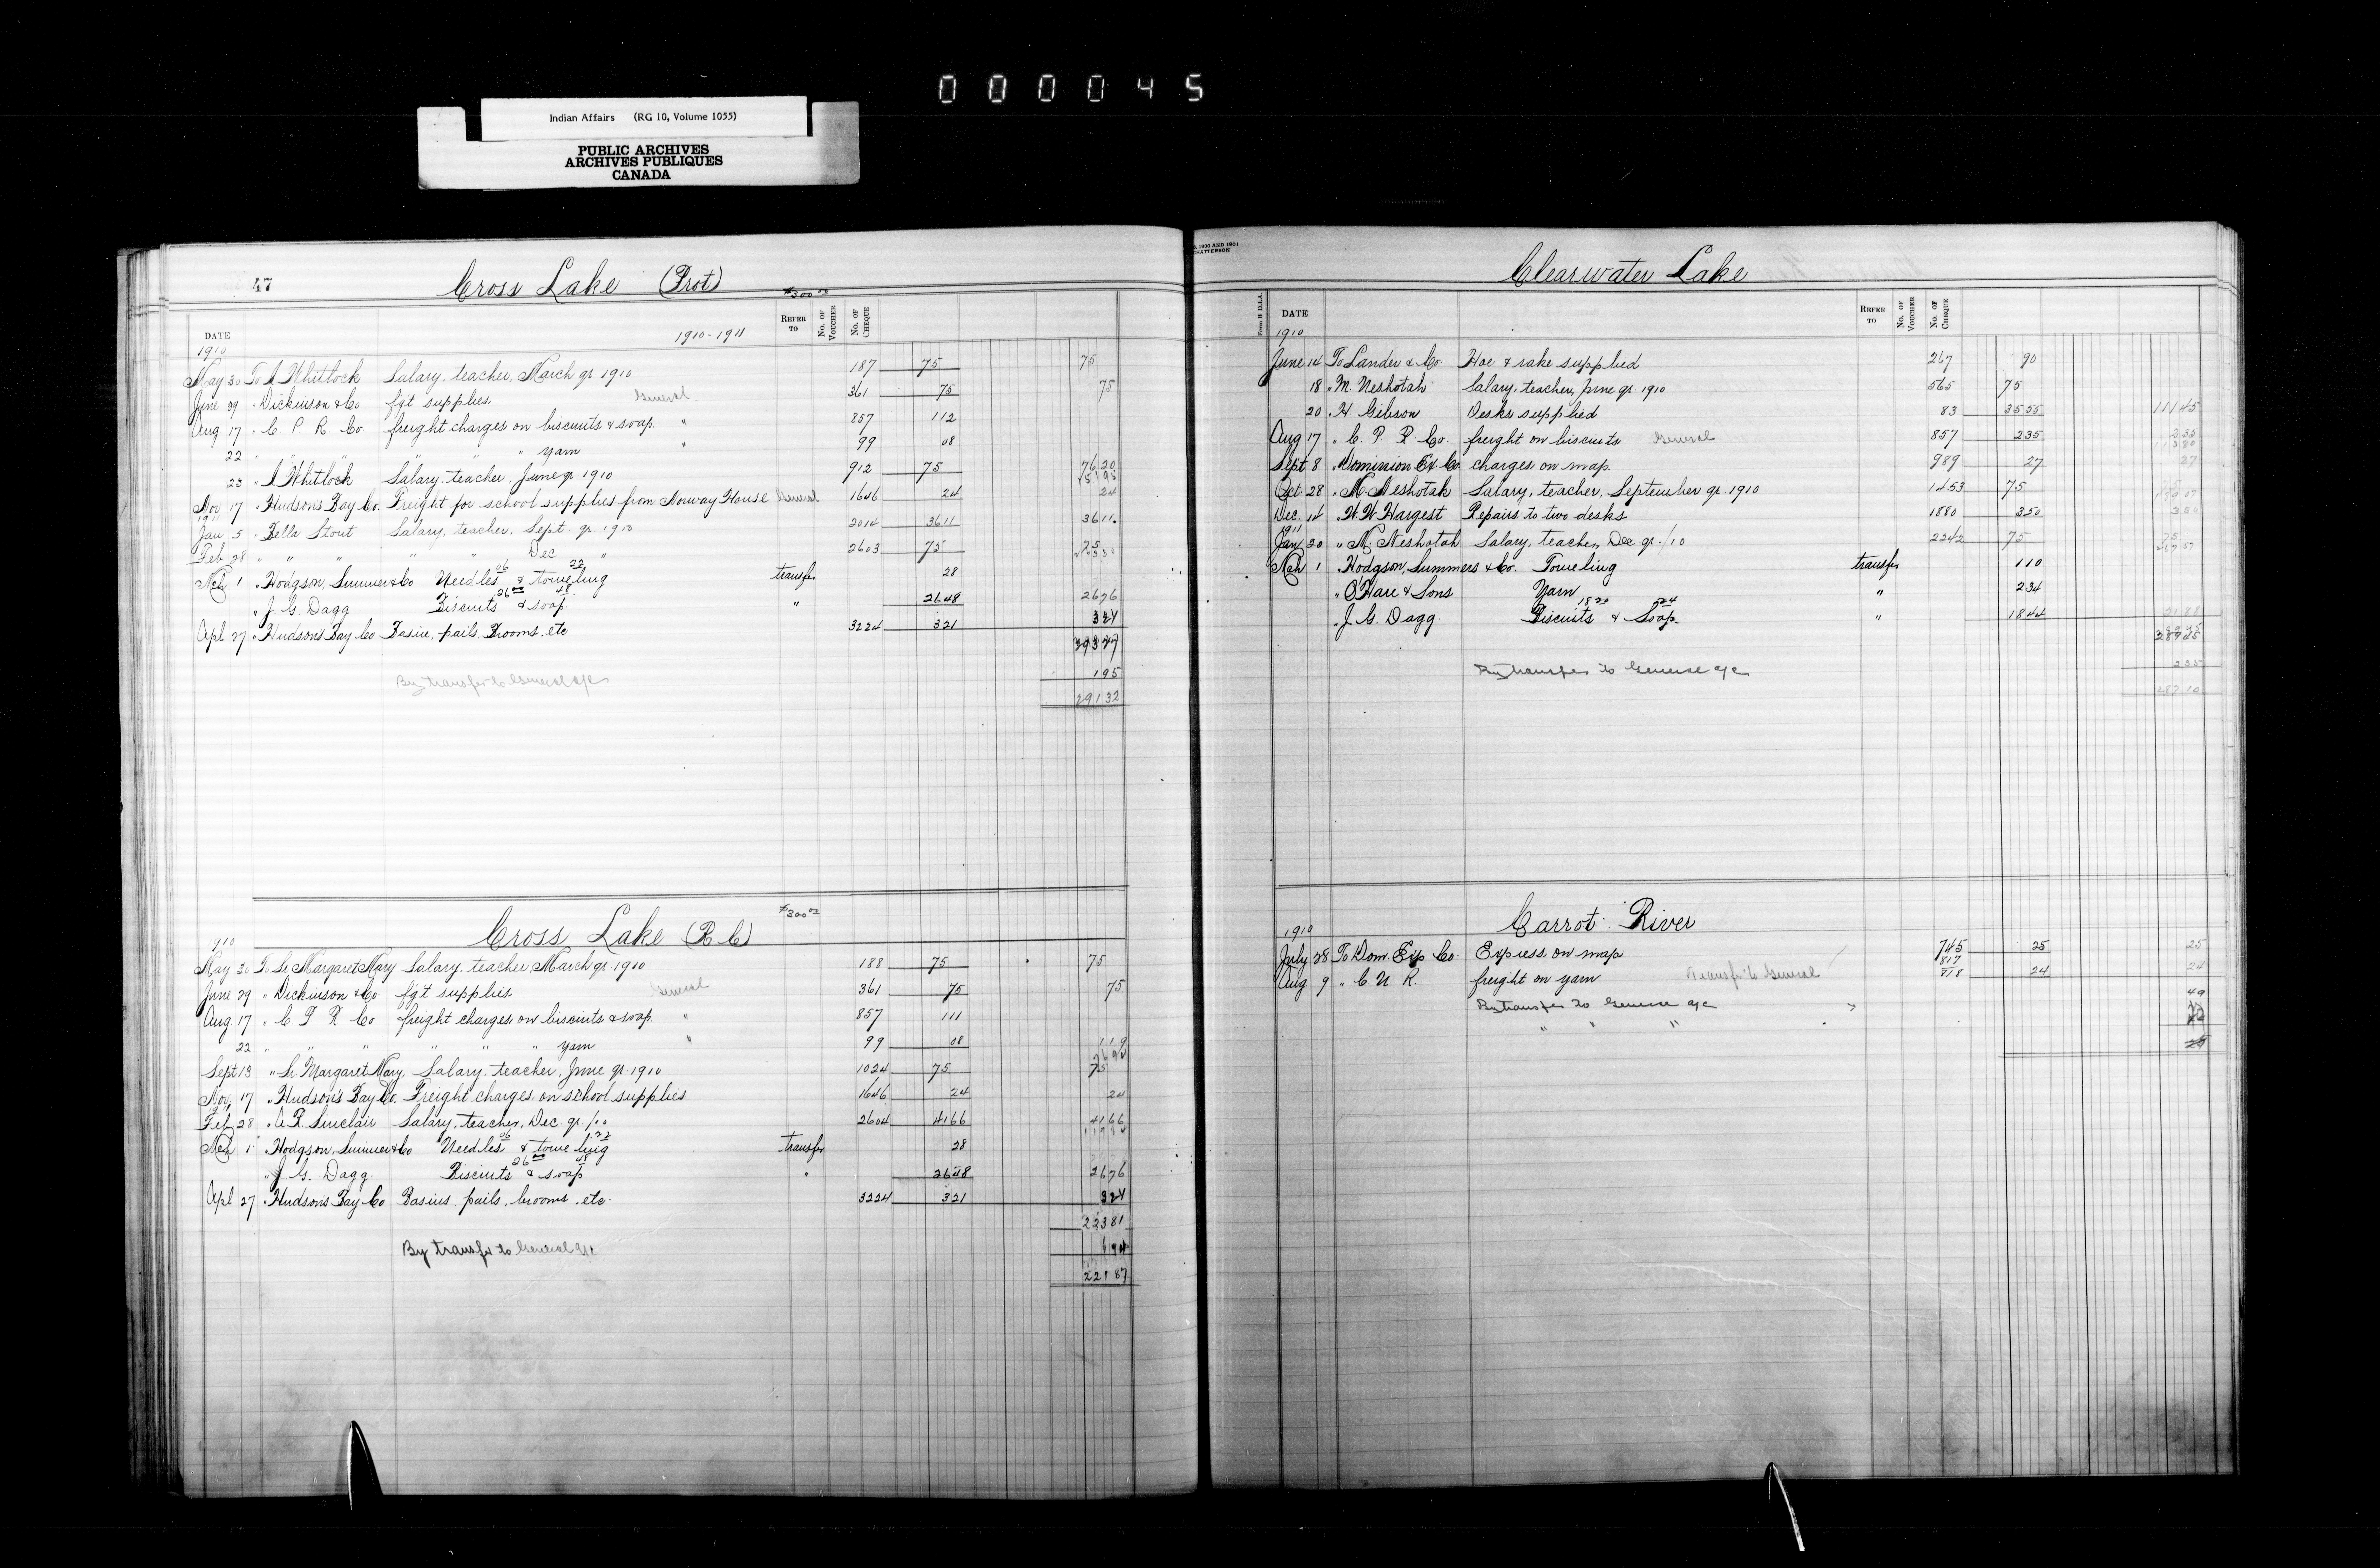 000045
Indian Affairs (RG 10, Volume 1055)
PUBLIC ARCHIVES
ARCHIVES PUBLIQUES
CANADA
47
Cross Lake (Prot)
$300.00
DATE
1910-1911
REFER TO
No. OF VOUCHER
No. OF CHEQUE
1910
May 30 To I. Whitlock Salary, teacher, March qr. 1910 187 75 75
June 29 " Dickinson & Co fgt supplies General 361 75 75
Aug 17 " C P R Co. freight charges on biscuits & soap " 857 1 12
22 " " " " yarn " 99 08
23 " I. Whitlock Salary, teacher, June qr 1910 912 75 76 20
Nov 17 " Hudson's Bay Co. Freight for school supplies from Norway House General 1646 24 24
1911
Jan 5 " Bella Stout Salary, teacher, Sept. qr. 1910 2014 36 11 36 11
Feb 28 " " " " " Dec " 2603 75 75
Mch 1 " Hodgson, Sumner & Co Needles 06 & toweling 22 transfer 28
" J. G. Dagg Biscuits 26 00 & soap 48 " 26 48 26 76
Apl 27 " Hudson's Bay Co Basin, pails, Brooms, etc 3224 3 21 3 21
293 27
1 95
By transfer to General a/c
291 32
Cross Lake (R.C.)
$300.00
1910
May 30 To Sr. Margaret Mary Salary, teacher, March qr. 1910 188 75 75
June 29 " Dickinson & Co. fgt supplies General 361 75 75
Aug. 17 " C P R Co. freight charges on biscuits & soap " 857 1 11
22 " " " " " yarn " 99 08 1 19
Sept 13 " Sr. Margaret Mary, Salary, teacher, June qr. 1910 1024 75 75
Nov. 17 " Hudson's Bay Co. Freight charges on school supplies 1646 24 24
Feb 28 " A. R. Sinclair Salary, teacher, Dec. qr. /10 2604 41 66 41 66
Mch 1 " Hodgson, Sumner & Co Needles 06 & toweling 22 transfer 28
" J. G. Dagg. Biscuits 26 00 & soap 48 " 26 48 26 76
Apl 27 " Hudson's Bay Co Basins, pails, brooms, etc. 3224 3 21 3 21
223 81
By transfer to General a/c 1 94
221 87
Clearwater Lake
Form B D.I.A.
DATE
REFER TO
No. OF VOUCHER
No. OF CHEQUE
1910
June 14 To Lander & Co. Hoe & rake supplied 267 90
18 " M. Neshotah Salary, teacher, June qr. 1910 565 75
20 " H. Gibson Desks supplied 83 35 55 111 45
Aug 17 " C. P. R. Co. freight on biscuits General 857 2 35 2 35
Sept 8 " Dominion Ex. Co. charges on map 989 27 27
Oct 28 " M. Neshotah Salary, teacher, September qr. 1910 1453 75 75
Dec. 14 " W. W. Hargest Repairs to two desks 1880 3 50 3 50
1911
Jan 20 " M. Neshotah Salary, teacher, Dec. qr. /10 2242 75 75
Mch 1 " Hodgson, Summers & Co. Toweling transfer 1 10
" O'Hare & Sons Yarn " 2 34
" J. G. Dagg. Biscuits & Soap " 18 44 21 88
289 45
By transfer to General a/c 2 35
287 10
Carrot River
1910
July 28 To Dom. Exp Co. Express on map 745 25 25
Aug 9 " C N R. freight on yarn Transfer to General 817 818 24 24
By transfer to General a/c 49
" " "